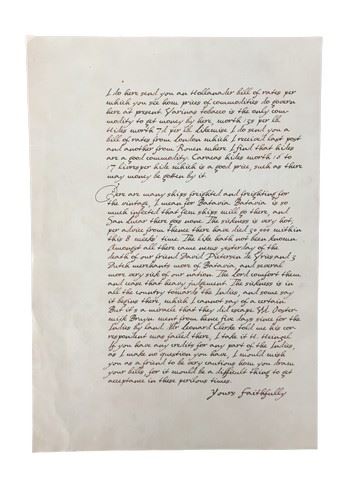 I do here send you an Hollander bill of rates per
which you see how prices of commodities do govern
here at present. Varinas tobacco is the only com-
modity to get money by here, worth 13s per lb.
Hides worth 7d per lb. Likewise I do send you a
bill of rates from London which I received last post
and another from Rouen where I find that hides
are a good commodity. Caracas hides worth 16 to
17 livres per hide which is a good price, such as there
may money be gotten by it.
Here are many ships freighted and freighting for
the vintage, I mean for Batavia. Batavia is so
much infected that few ships will go there, and
San Lucar there goes none. The sickness is very hot,
per advice from thence there have died 30 000 within
this 8 weeks' time. The like hath not been known.
Amongst all there came news yesterday of the
death of our friend David Pietersen de Vries and 3
Dutch merchants more of Batavia, and several
more very sick of our nation. The Lord comfort them
and cease that heavy judgement. The sickness is in
all the country towards the Indies, and some say
it begins there, which I cannot say of a certain.
But it's a miracle that they did escape. Mr. Ooster-
wijk Bruyn went from hence five days since for the
Indies by land. Mr Leonard Clerke told me his cor-
respondent was failed there, I take it
If you have any credits for any part of the Indies,
as I make no question you have, I would wish
you as a friend to be very cautious how you draw
your bills, for it would be a difficult thing to get
acceptance in these perilous times.
Yours faithfully